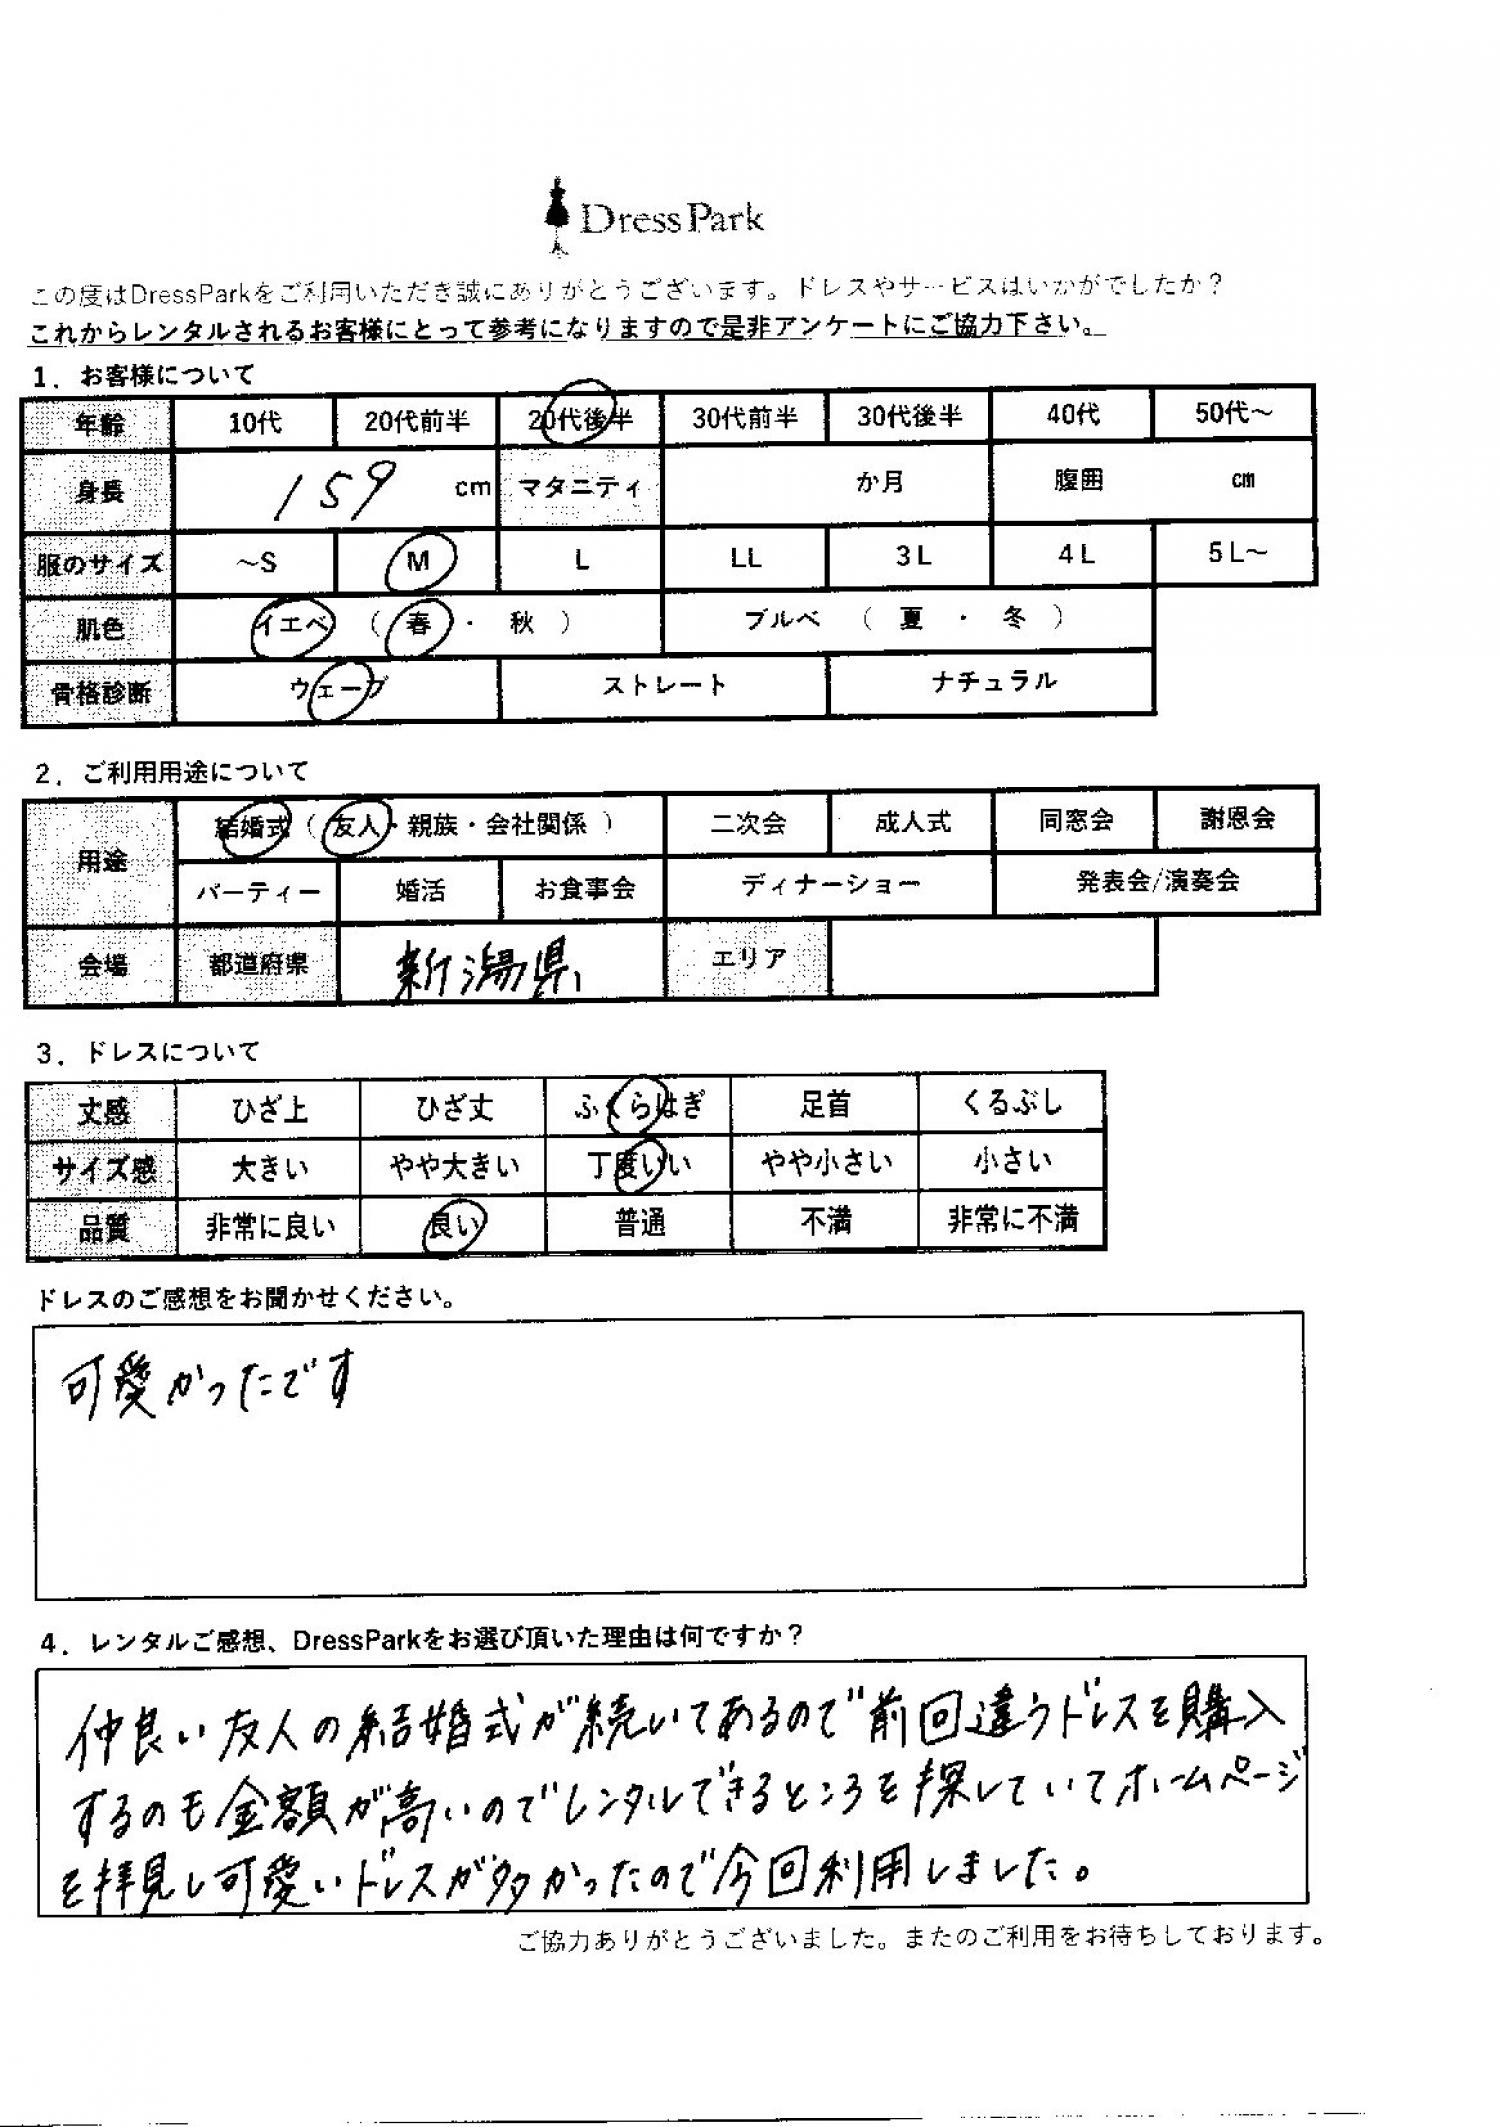 DressPark
この度はDressParkをご利用いただき誠にありがとうございます。ドレスやサービスはいかがでしたか？
これからレンタルされるお客様にとって参考になりますので是非アンケートにご協力下さい。
1．お客様について
年齢 10代 20代前半 20代後半 30代前半 30代後半 40代 50代～
身長 159 cm マタニティ か月 腹囲 cm
服のサイズ ～S M L LL 3L 4L 5L～
肌色 イエベ （ 春 ・ 秋 ） ブルベ （ 夏 ・ 冬 ）
骨格診断 ウェーブ ストレート ナチュラル
2．ご利用用途について
用途 結婚式（ 友人・親族・会社関係 ） 二次会 成人式 同窓会 謝恩会
パーティー 婚活 お食事会 ディナーショー 発表会/演奏会
会場 都道府県 新潟県 エリア
3．ドレスについて
丈感 ひざ上 ひざ丈 ふくらはぎ 足首 くるぶし
サイズ感 大きい やや大きい 丁度いい やや小さい 小さい
品質 非常に良い 良い 普通 不満 非常に不満
ドレスのご感想をお聞かせください。
可愛かったです
4．レンタルご感想、DressParkをお選び頂いた理由は何ですか？
仲良い友人の結婚式が続いてあるので前回違うドレスを購入
するのも金額が高いのでレンタルできるところを探していてホームページ
を拝見し可愛いドレスが多かったので今回利用しました。
ご協力ありがとうございました。またのご利用をお待ちしております。